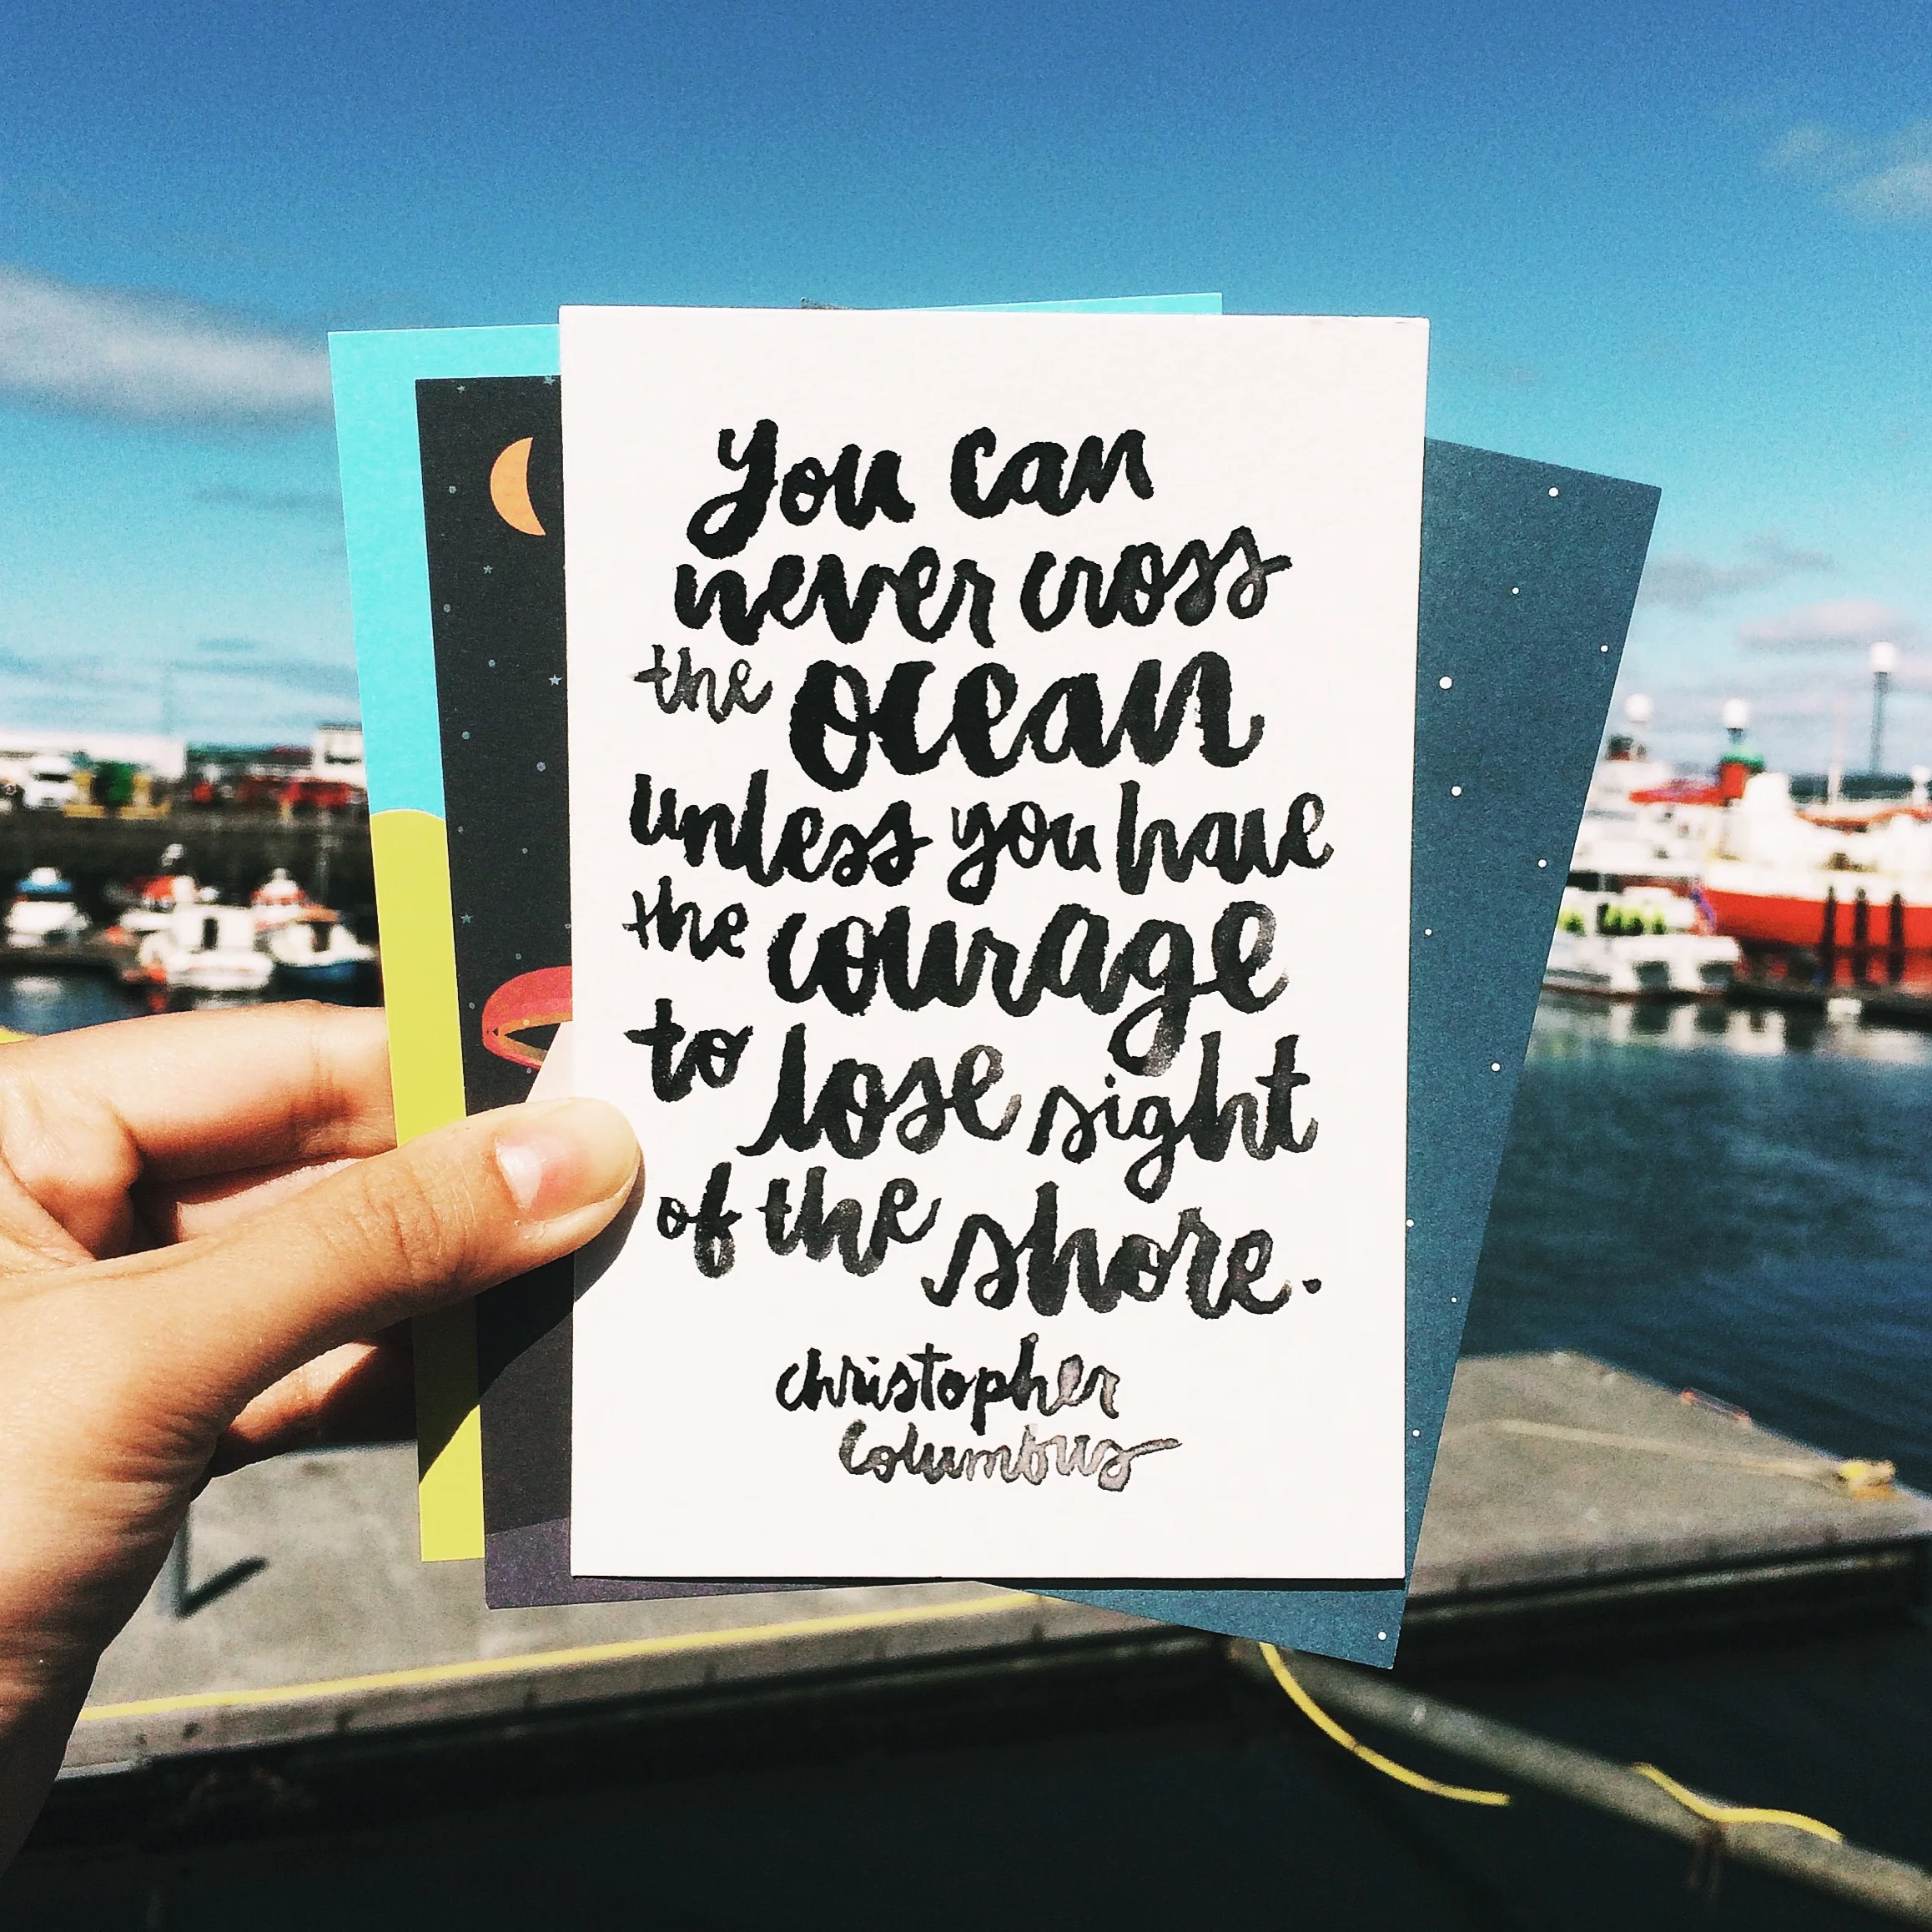 You can
never cross
the ocean
unless you have
the courage
to lose sight
of the shore.
christopher
Columbus